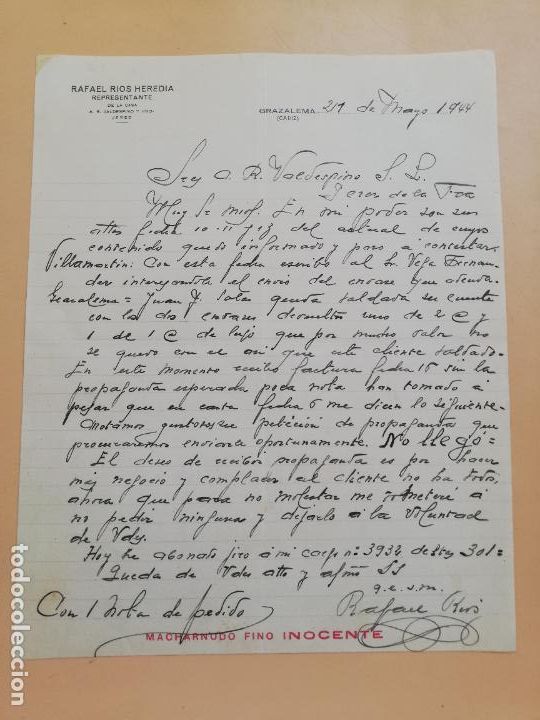 RAFAEL RIOS HEREDIA
REPRESENTANTE
DE LA CASA
A. R. VALDESPINO Y HNO.
JEREZ
GRAZALEMA 21 de Mayo 1944
(CADIZ)
Sres A. R. Valdespino S. L.
Jerez de la Fra
Muy Sr mios. En mi poder son sus
attas fechas 10-11 y 13 del actual de cuyo
contenido quedo informado y paso a contestar
Villamartin: Con esta fecha escribo al Sr. Vega Fernan-
dez interesandole el envio del envase que adeuda
Grazalema = Juan J. Salas queda saldada su cuenta
con los dos envases devueltos uno de 2 @ y
1 de 1 @ de lujo que por mucho valor no
se quedo con el asi que este cliente saldado.
En este momento recibo factura fecha 15 sin la
propaganda esperada poca nota han tomado a
pesar que en carta fecha 6 me dicen lo siguiente
Anotamos gustosos su petición de propaganda que
procuraremos enviarla oportunamente. NO llegó =
El deseo de recibir propaganda es por hacer
más negocio y complacer al cliente no ha todos,
ahora que para no molestar me prometeré a
no pedir ninguna y dejarlo a la voluntad
de Vds.
Hoy he abonado giro a mi cargo nº 3934 de Ptas 301=
Queda de Vdes atto y afmo SS
q.e.s.m.
Con 1 Nota de pedido Rafael Rios
MACHARNUDO FINO INOCENTE
todocoleccion